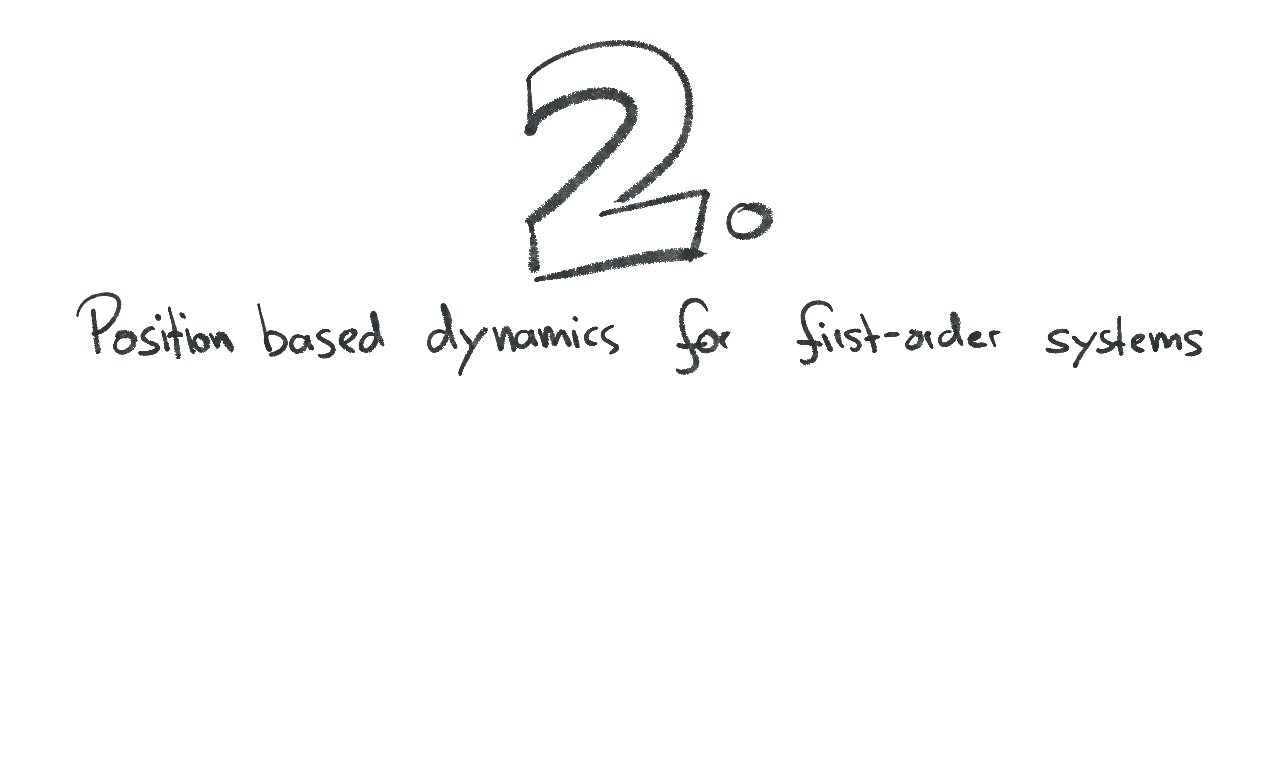 2.
Position based dynamics for first-order systems